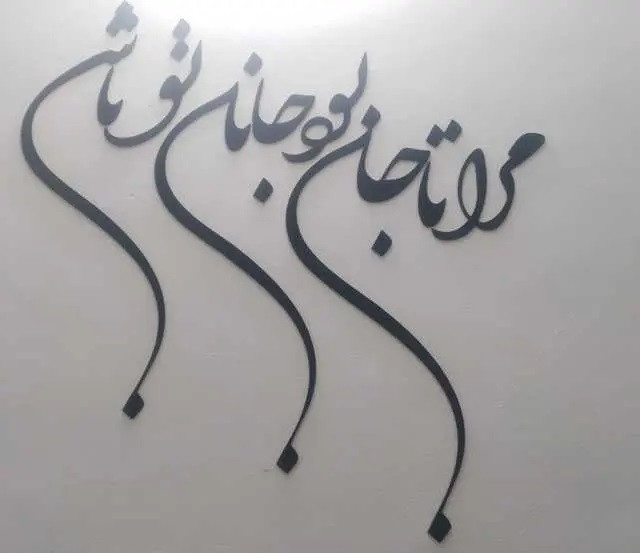 مرا تا جان بود جانان تو باشی